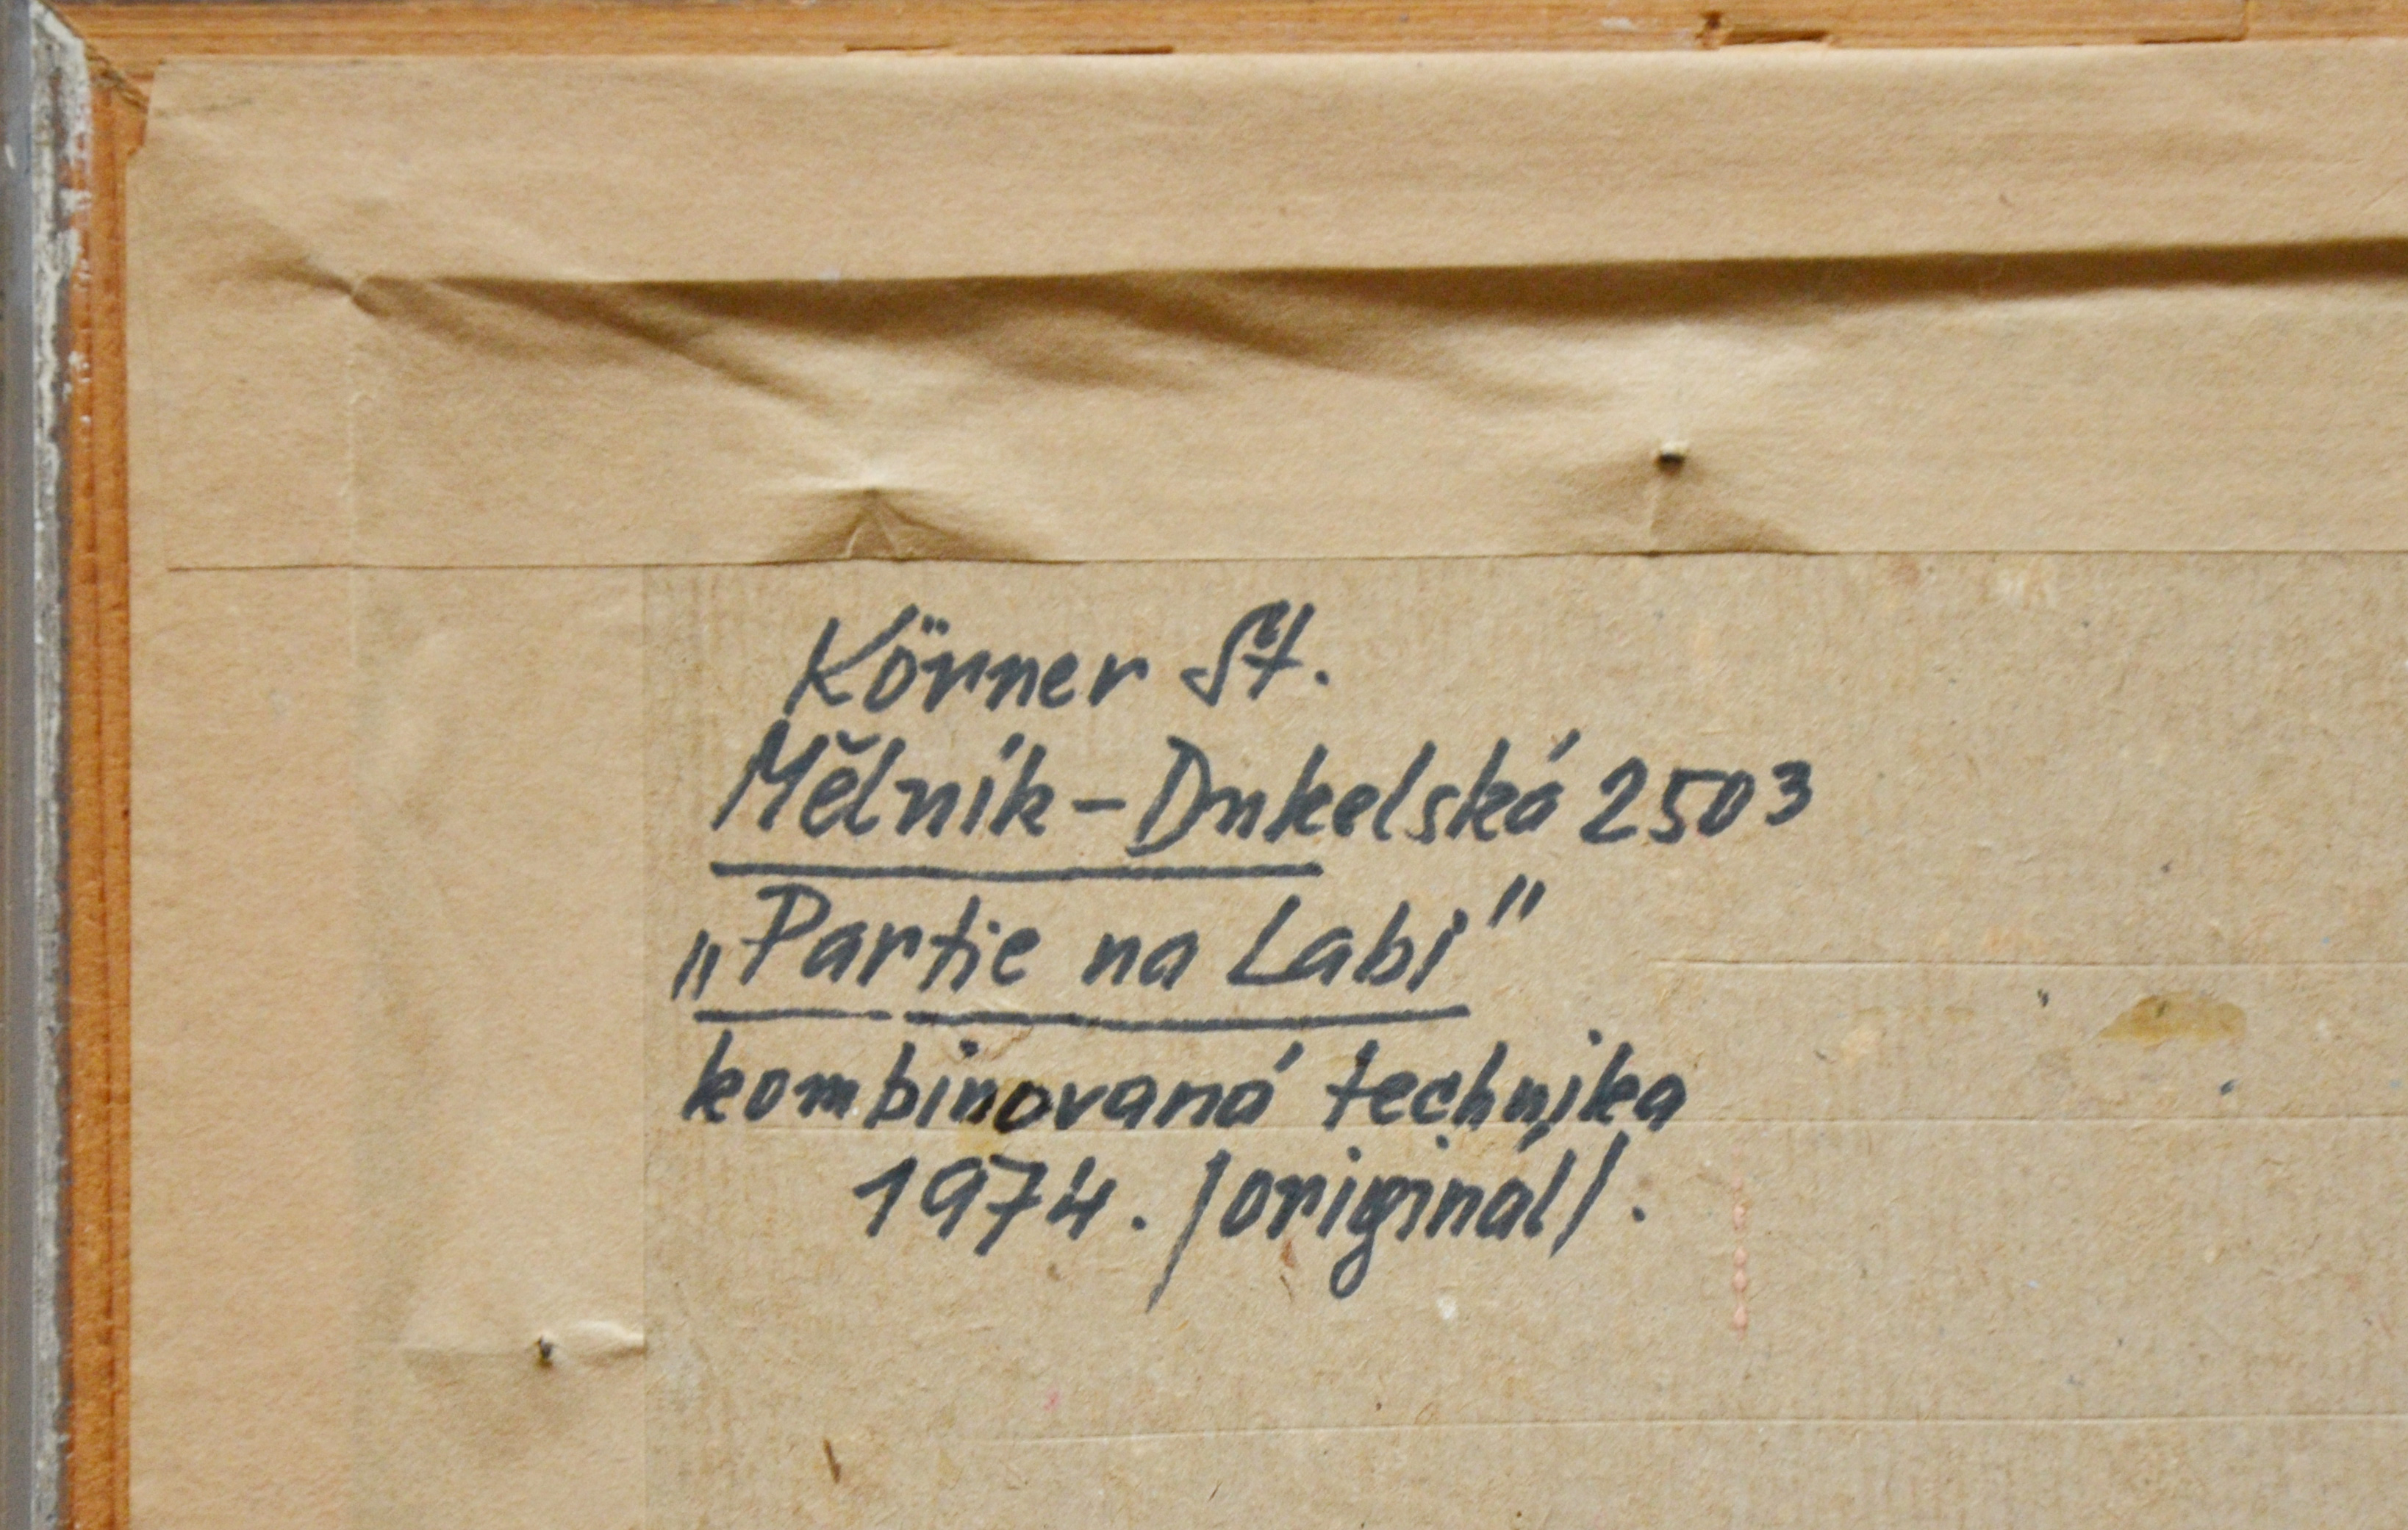 Körner St.
Mělník-Dukelská 2503
„Partie na Labi"
kombinovaná technika
1974. /originál/.